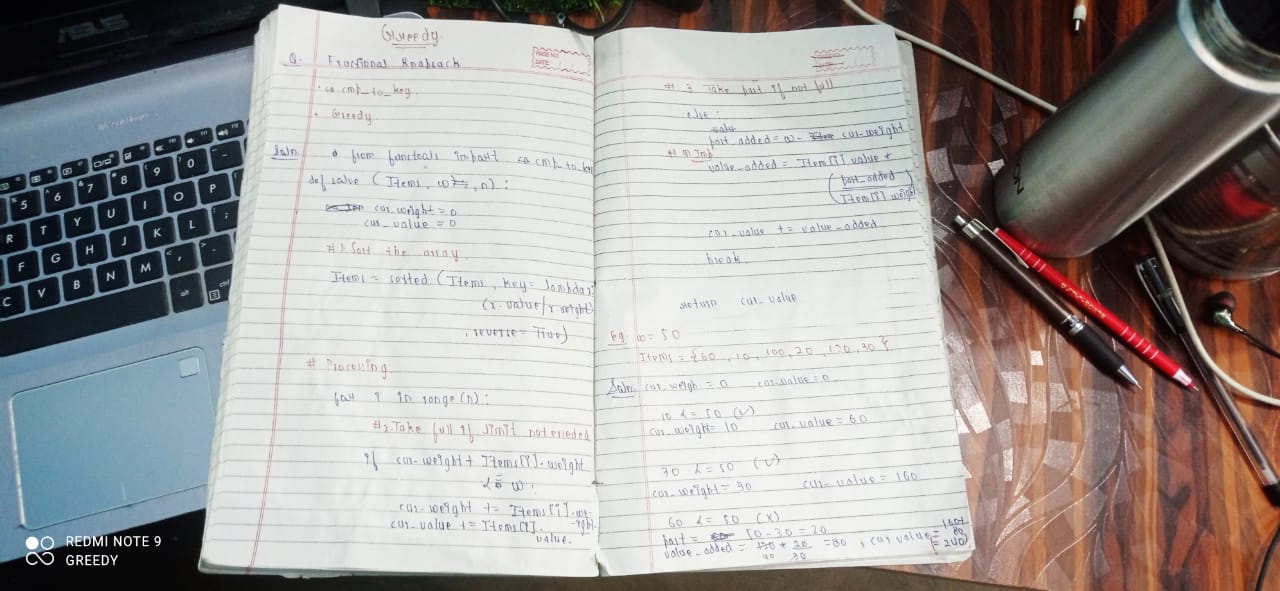 ASUS
Greedy.
PAGE NO.
DATE:
Q. Fractional Knapsack
cmp_to_key
Greedy
Soln.
from functools import cmp_to_key
def solve (Items, w, n):
cur_weight = 0
cur_value = 0
#1. Sort the array.
Items = sorted (Items, key = lambda x:
(x.value/x.weight)
, reverse = True)
# Processing.
for i in range(n):
#2. Take full if limit not exceded
if cur_weight + Items[i].weight
<= w:
cur_weight += Items[i].we-
-ight.
cur_value += Items[i].
value.
# 3 Take part if not full
else:
part_added = w - cur_weight
# Imp
value_added = Item[i].value *
(part_added
Item[i].weight)
cur_value += value_added.
break.
return cur_value
Eg. w = 50
Items = {60, 10, 100, 20, 120, 30}
Soln. cur_weigh = 0 cur_value = 0.
10 <= 50 (✓)
cur_weight = 10 cur_value = 60
30 <= 50 (✓)
cur_weight = 30 cur_value = 160
60 <= 50 (X)
part = 50-30 = 20
value_added = 120 * 20 = 80, cur value = 160+
80
= 240
REDMI NOTE 9
GREEDY